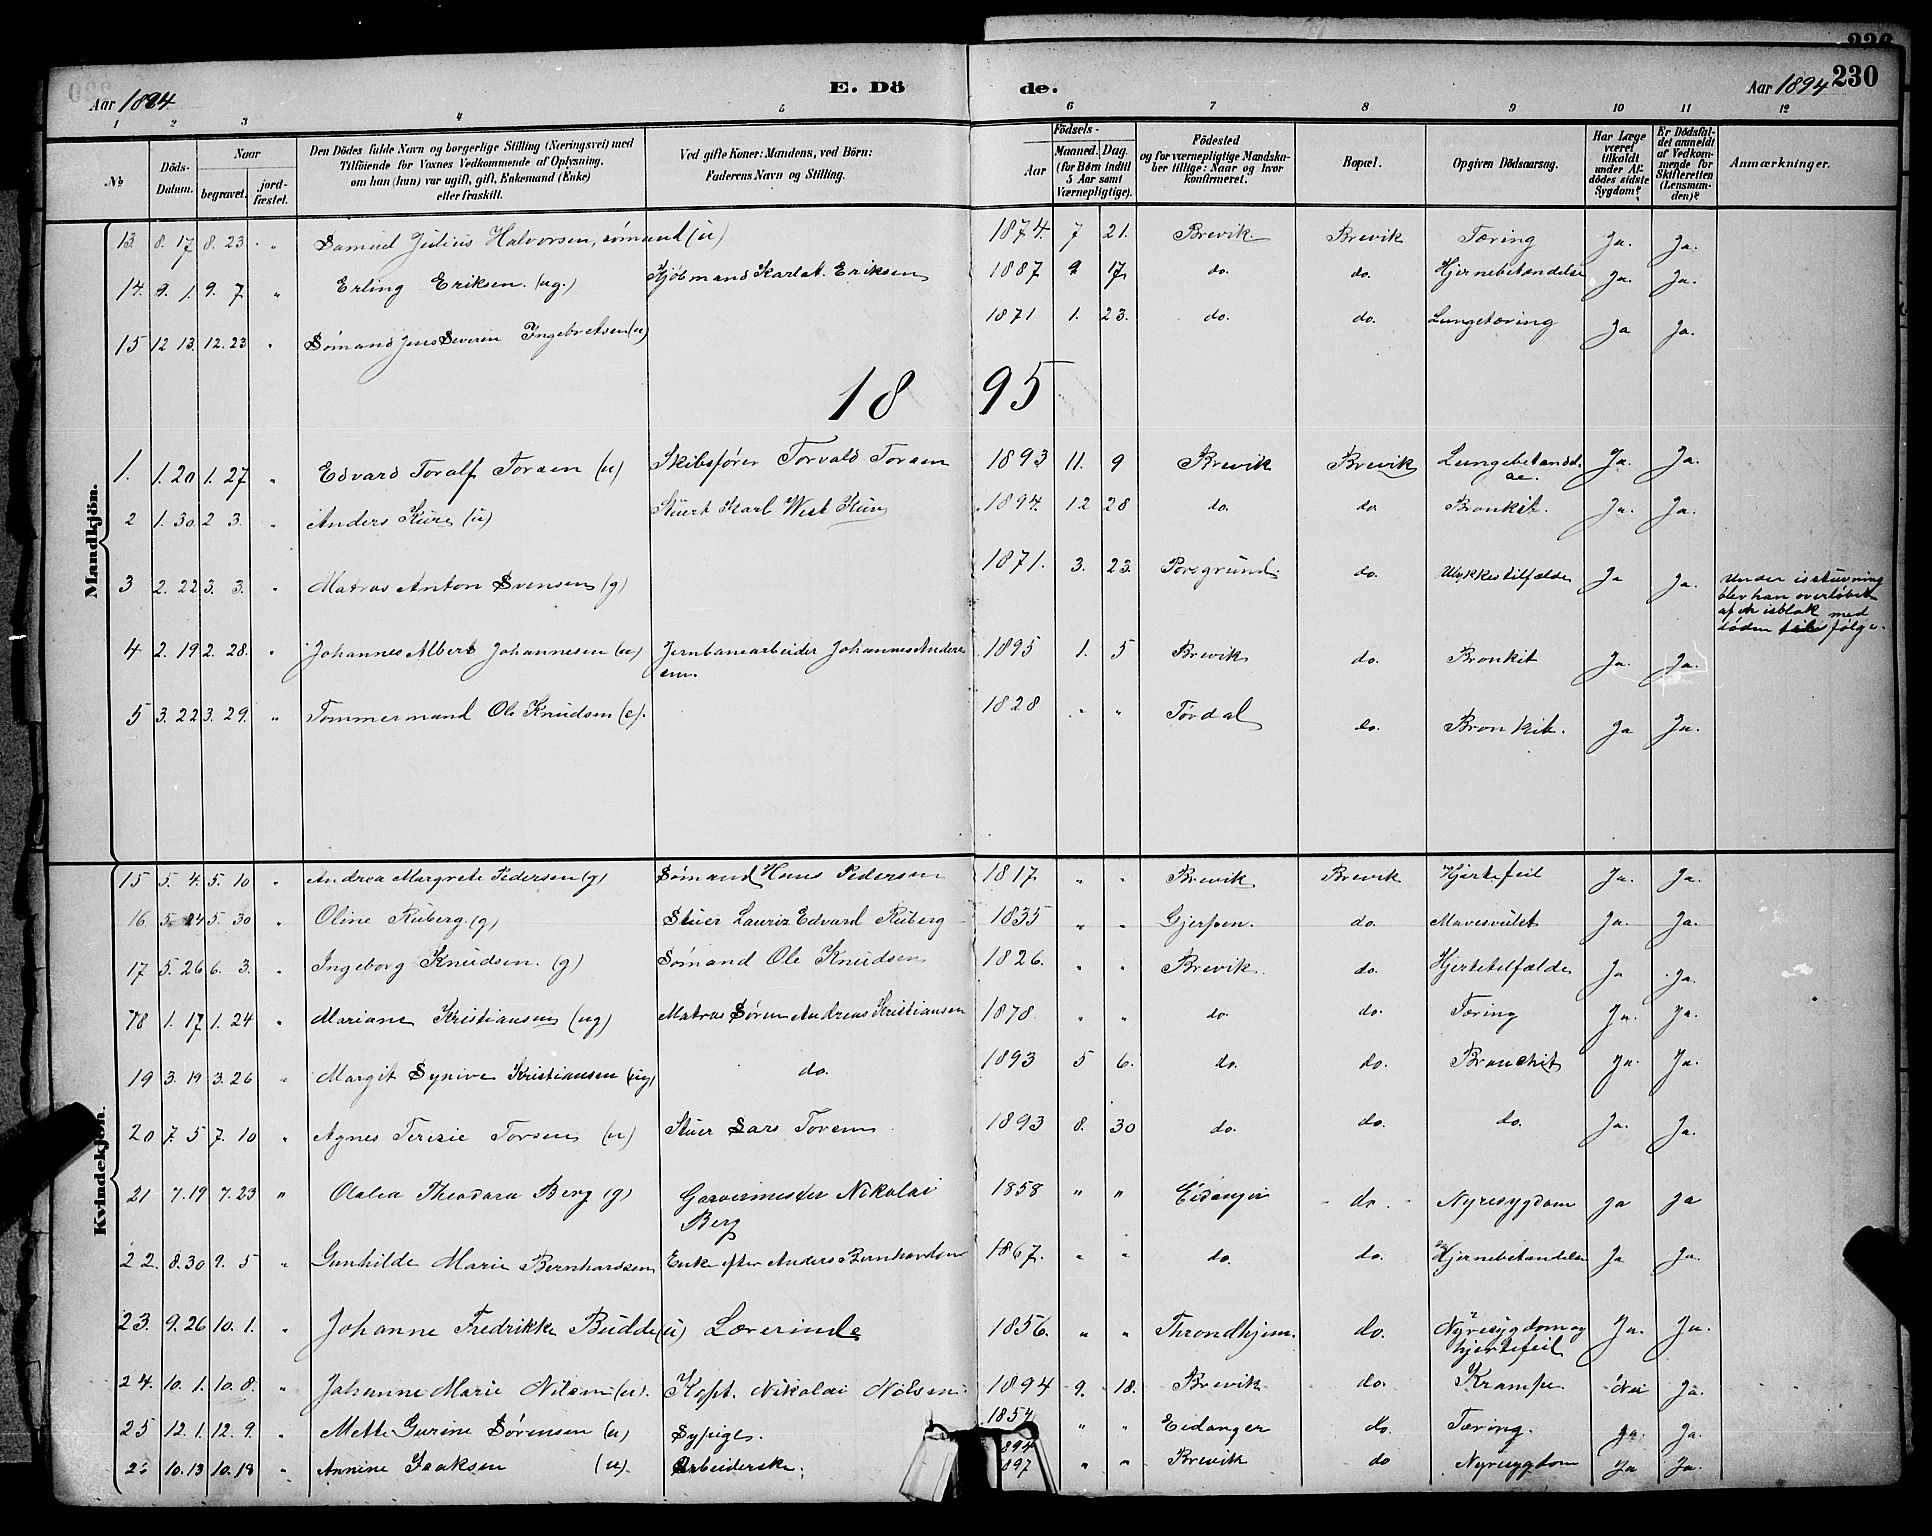 Aar 1894
E. Dö
de.
Aar 1894
230
1 2 3 4 5 6 7 8 9 10 11 12
No
Döds-Datum.
Naar
begravet.
jord-fæstet.
Den Dödes fulde Navn og borgerlige Stilling (Næringsvei) med
Tilföiende for Voxnes Vedkommende af Oplysning,
om han (hun) var ugift, gift, Enkemand (Enke)
eller fraskilt.
Ved gifte Koner: Mandens, ved Börn:
Faderens Navn og Stilling.
Födsels-
Aar
Maaned. Dag.
(for Börn indtil
5 Aar samt
Værnepligtige).
Födested
og for værnepligtige Mandska-
ber tillige: Naar og hvor
konfirmeret.
Bopæl.
Opgiven Dödsaarsag.
Har Læge
været
tilkaldt
under Af-
dödes sidste
Sygdom?
Er Dödsfal-
det anmeldt
af Vedkom-
mende for
Skifteretten
(Lensman-
den)?
Anmærkninger.
Mandkjön.
13 8. 17 8. 23 " Samuel Julius Halvorsen, sømand (u) 1874. 7 21. Brevik Brevik Tæring Ja. Ja.
14. 9. 1. 9. 7 " Erling Eriksen. (ug.) Kjøbmand Karl A. Eriksen 1887 9 17 do. do. Hjernebetændelse Ja. Ja.
15 12 13. 12. 23 " Sømand Jens Severin Ingebretsen (u) 1871 1. 23. do. do. Lungetæring Ja Ja.
18 95
1. 1. 20 1. 27 " Edvard Toralf Torsen (u) Skibsfører Torvald Torsen 1893 11. 9 Brevik Brevik Lungebetændel-
se. Ja. Ja.
2 1. 30. 2 3. " Anders Kure (u) Stuert Karl West Kure 1894. 12 28 do. do. Bronkit. Ja. Ja.
3 2. 22 3. 3. " Matros Anton Svensen (g) 1871. 3. 23. Porsgrund. do. Ulykkestilfælde Ja Ja.
Under isstuvning
blev han overløbet
af en isblok med
døden til følge.
4 2. 19 2. 28. " Johannes Albert Johannesen (u) Jernbanearbeider Johannes Anders
en. 1895 1. 5 Brevik do. Bronkit Ja. Ja.
5 3. 22 3. 29. " Tømmermand Ole Knudsen (e). 1828 " " Tørdal do. Bronkit. Ja Ja.
Kvindekjön.
15 5. 4. 5. 10 " Andrea Margrete Pedersen (g) Sømand Hans Pedersen 1817 " " Brevik Brevik Hjertefeil Ja. Ja.
16 5. 24 5. 30 " Oline Ruberg. (g) Stuer Lauriz Edvard Ruberg 1835 " " Gjerpen. do. Mavesvulst Ja. Ja.
17 5. 26 6. 3. " Ingeborg Knudsen. (g) Sømand Ole Knudsen 1826. " " Brevik. do. Hjertetilfælde Ja Ja.
18 1. 17 1. 24 " Mariane Kristiansen (ug) Matros Søren Andreas Kristiansen 1878. " " do. do. Tæring Ja. Ja.
19 3. 19 3. 26 " Margit Synive Kristiansen (ug) do. 1893 5 6. do. do. Bronchit Ja. Ja.
20 7. 5 7. 10 " Agnes Terezie Torsen (u) Stuer Lars Torsen 1893 8. 30 do. do. do. Ja. Ja.
21 7. 19 7. 23 " Olalea Theodora Berg (g) Garvermester Nikolai
Berg 1858 " " Eidanger do. Nyresygdom Ja Ja
22. 8. 30 9. 5 " Gunhilde Marie Bernhardsen Enke efter Anders Bernhardsen 1867. " " do. do. Hjernebetændelse Ja Ja.
23. 9. 26 10. 1. " Johanne Fredrikke Budde (u) Lærerinde 1856. " " Throndhjem. do. Nyresygdom og
hjertefeil Ja. Ja.
24. 10. 1. 10. 8. " Johanne Marie Nilsen (u). Kapt. Nikolai Nilsen. 1894 9. 18. Brevik do. Krampe. Nei Ja.
25 12. 1. 12. 9. " Mette Gurine Sørensen (u) Sypige. 1854 " " Eidanger do. Tæring. Ja. Ja.
10. 13 10. 18 " Annine Isaksen (u). Arbeiderske. " " Brevik do Nyresygdom Ja Ja.